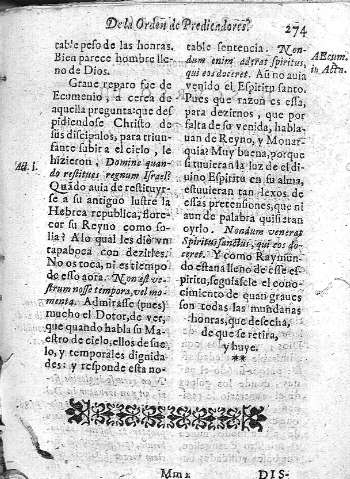 De la Orden de Predicadores.
274
table peso de las honras.
Bien parece hombre lle-
no de Dios.
Graue reparo fue de
Ecumenio, a cerca de
aquella pregunta: que des
pidiendose Christo de
sus discipulos, para triun-
fante subir a el cielo, le
hizieron, Domine quan-
do restitues regnum Israel?
Quãdo auia de restituyr-
se a su antiguo lustre la
Hebrea republica, flore-
cer su Reyno como so-
lia? A lo qual les dio vn
tapaboca con dezirles.
No os toca, ni es tiempo
de esso aora. Non est ve-
strum nosse tempora, vel mo-
menta. Admirasse (pues)
mucho el Dotor, de ver,
que quando habla su Ma-
estro de cielo, ellos de sue
lo, y temporales dignida
des: y responde esta no-
Act. 1.
table sentencia. Non-
dum enim aderat spiritus,
qui eos doceret. Aũ no auia
venido el Espiritu santo.
Pues que razon es essa,
para dezirnos, que por
falta de su venida, habla-
uan de Reyno, y Monar-
quia? Muy buena, porque
si tuuieran la luz de el di-
uino Espiritu en su alma,
estuuieran tan lexos de
essas pretensiones, que ni
aun de palabra quisieran
oyrlo. Nondum venerat
Spiritus sanctus, qui eos do-
ceret. Y como Raymun-
do estaua lleno de esse es-
piritu, seguiasele el cono-
cimiento de quan graues
son todas las mundanas
honras, que desecha,
de que se retira,
y huye.
**
AEcum.
in Act.
Mm 2
DIS-